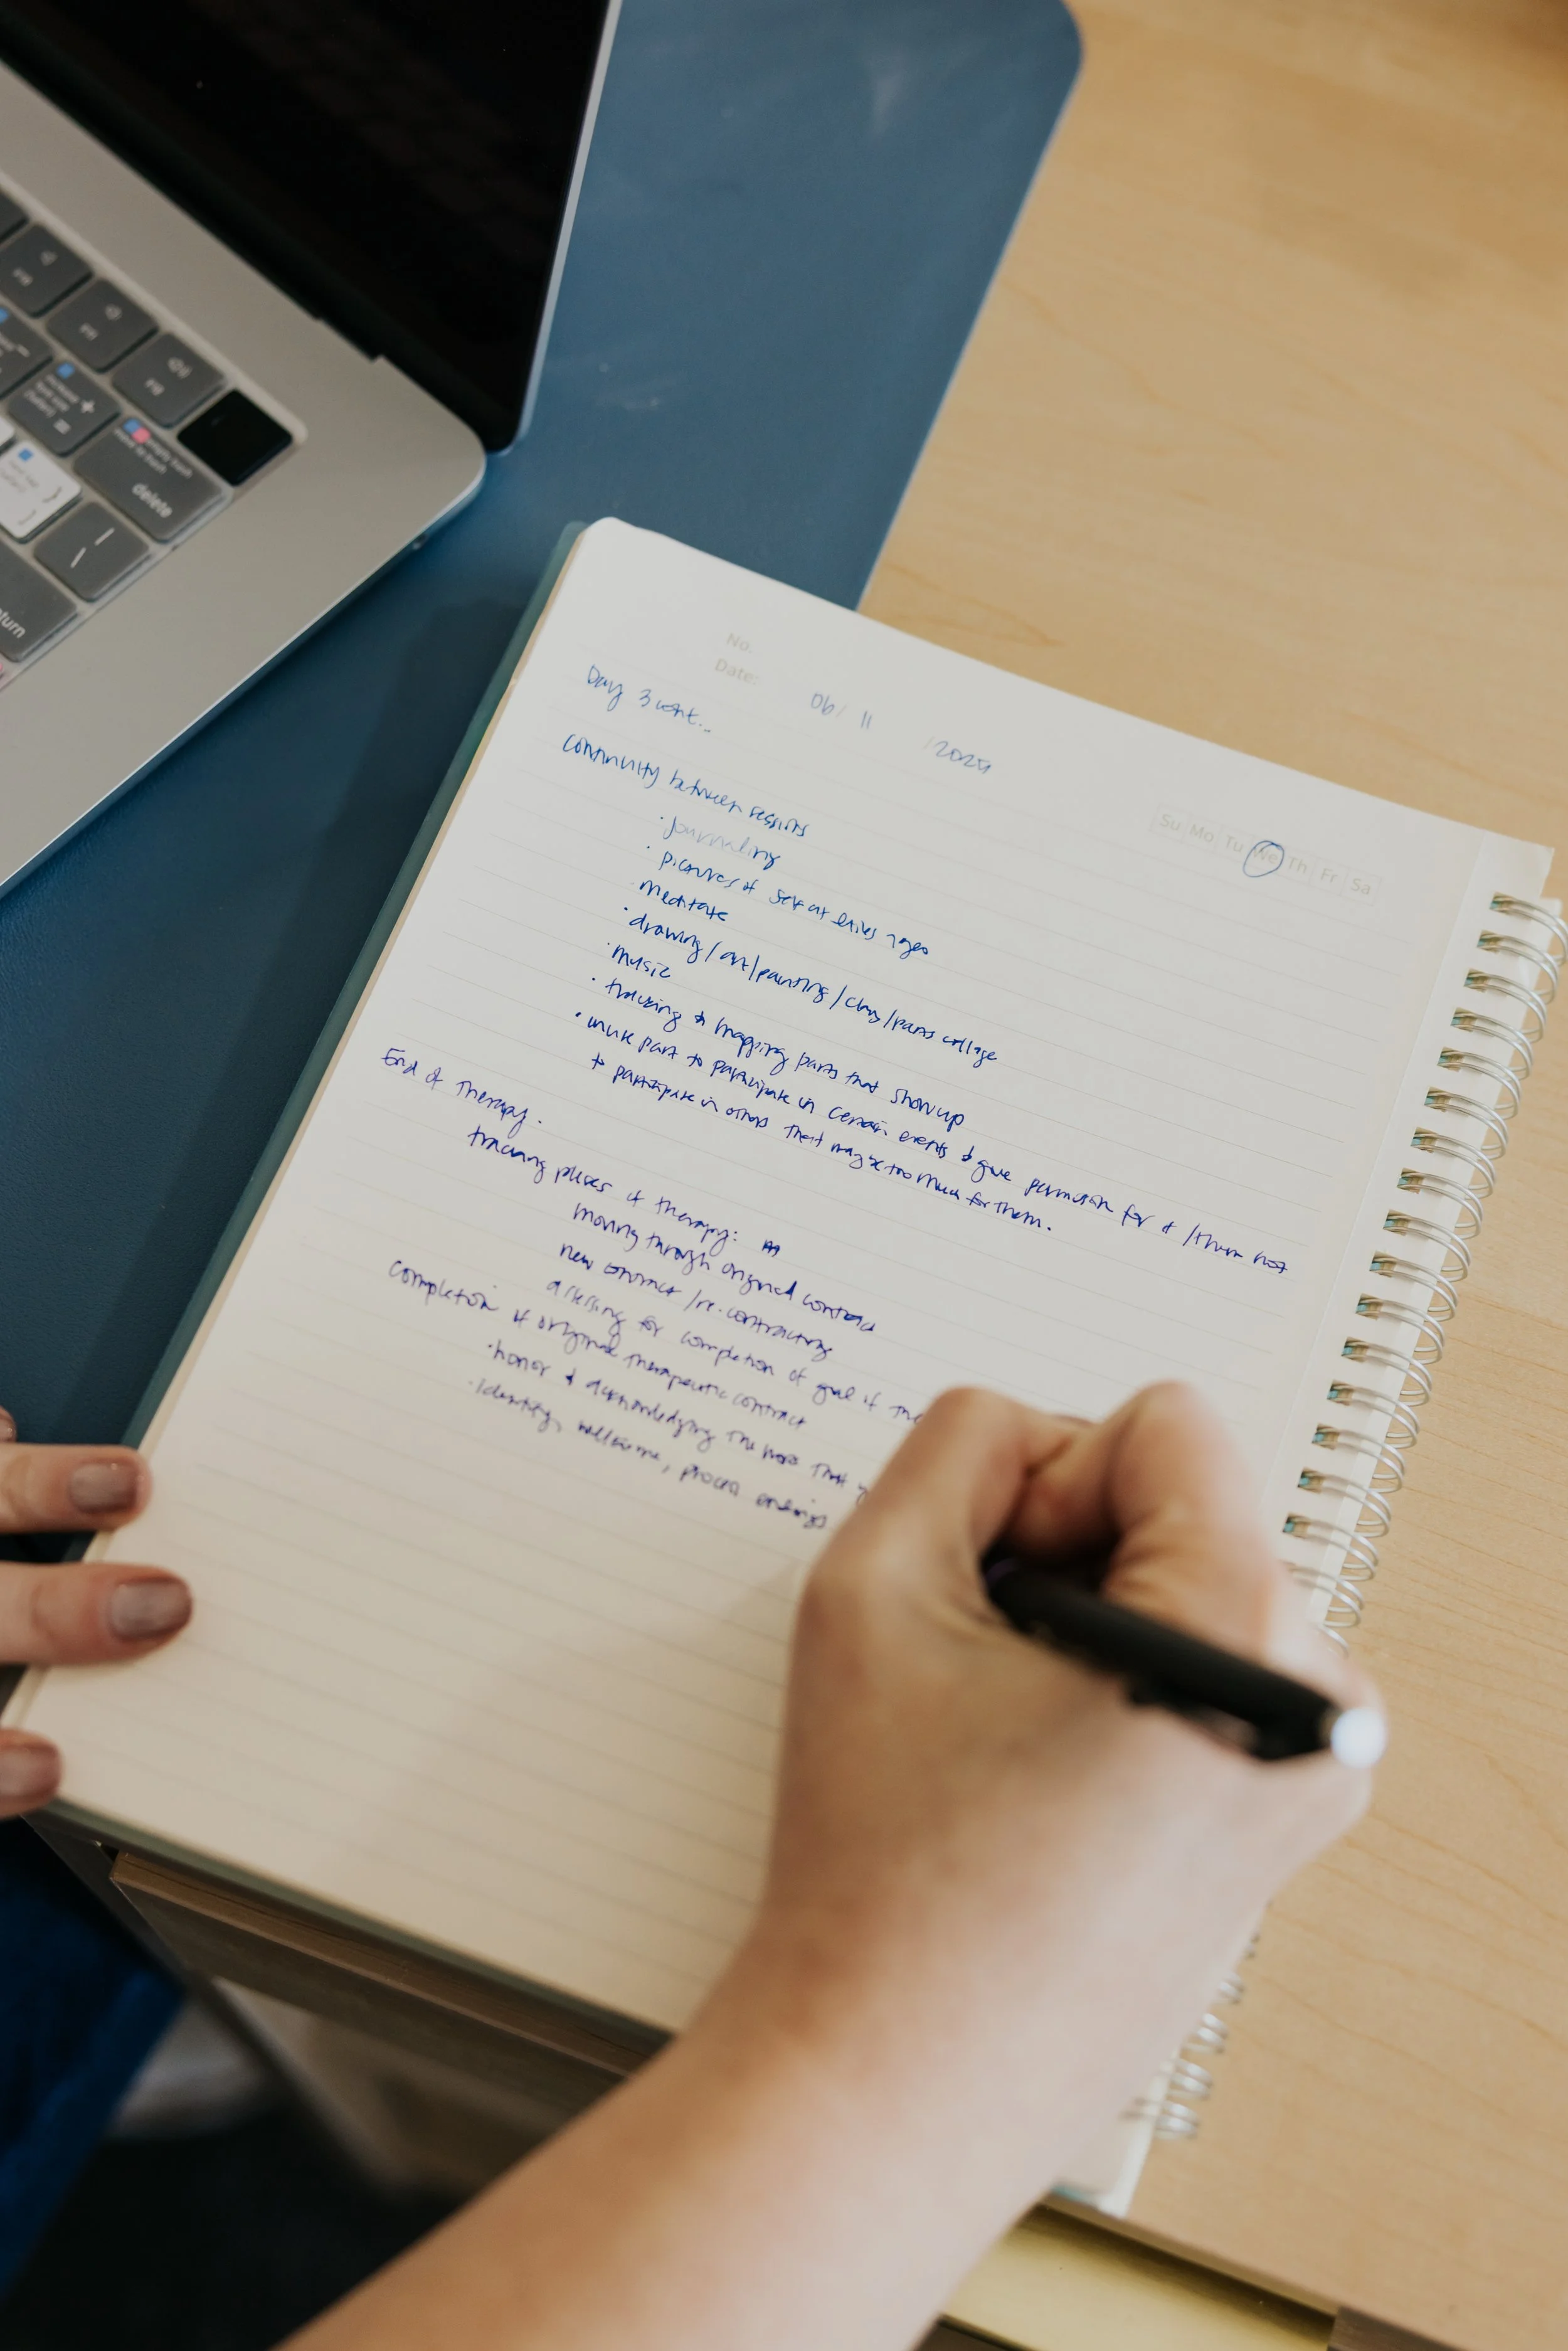 delete
No.
Date: 06/ 11 /2025
Su Mo Tu We Th Fr Sa
Day 3 cont...
continuity between sessions
· journaling
· pictures of self at ages
· meditate
· drawing / art / painting / clay / parts collage
· music
· tracking & mapping parts that show up
· invite part to participate in certain events & give permission for / them not
to participate in others that may be too much for them.
End of Therapy.
tracking phases of therapy:
moving through original contract
new contract / re-contracting
assessing for completion of goal if
completion of original therapeutic contract
· honor & acknowledging the work that
· identify, welcome, process endings